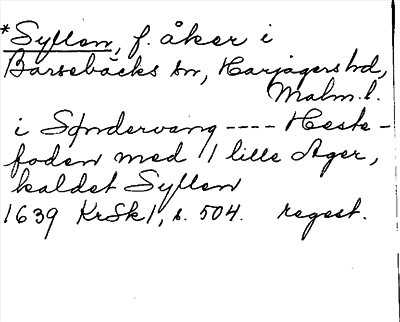 *Syllen, f. åker i
Barsebäcks sn, Harjagers hd,
Malm.l.
i Søndervang ---- Heste-
foden med 1 lille Ager,
kaldet Syllen
1639 KrSk1, s. 504. regest.